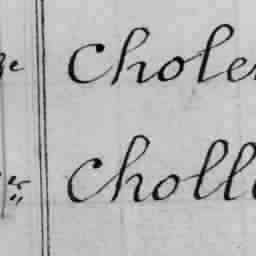 Choler
Choll